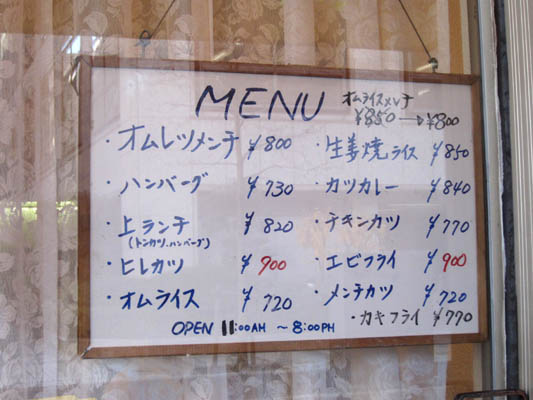 MENU
オムライスメンチ
¥850→¥800
・オムレツメンチ ¥800
・ハンバーグ ¥730
・上ランチ ¥820
(トンカツ、ハンバーグ)
・ヒレカツ ¥900
・オムライス ¥720
・生姜焼ライス ¥850
・カツカレー ¥840
・チキンカツ ¥770
・エビフライ ¥900
・メンチカツ ¥720
・カキフライ ¥770
OPEN 11:00AM ～8:00PM